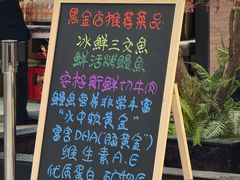 黑金店推荐菜品
冰鲜三文鱼
鲜活烤鳗鱼
安格斯鲜切牛肉
鳗鱼营养非常丰富
"水中软黄金"
富含DHA("脑黄金")
维生素A.E
优质蛋白 矿物质